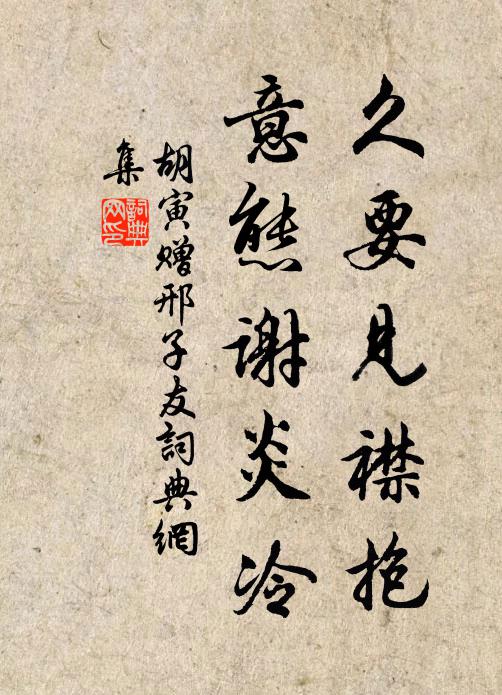 久要見襟抱
意態謝炎冷
胡寅赠邢子友詞典網
集
詞典
网印